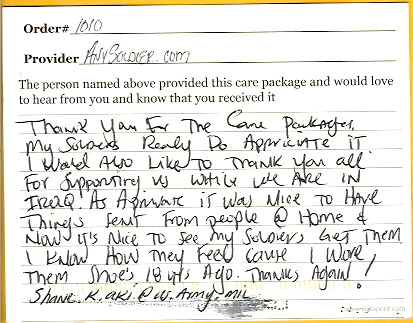 Order# 1010
Provider AnySoldier.com
The person named above provided this care package and would love
to hear from you and know that you received it
Thank You For The Care Packages.
My Soldiers Really Do Appriciate IT.
I Would Also Like To Thank You all
For Supporting us while we are in
Iraq! As A private it was Nice To Have
Things Sent From people @ Home &
Now it's Nice To See My Soldiers Get Them
I Know How They Feel Cause I Wore
Them Shoe's 18 yrs Ago. Thanks Again!
Shane.K.aki@us.Army.mil